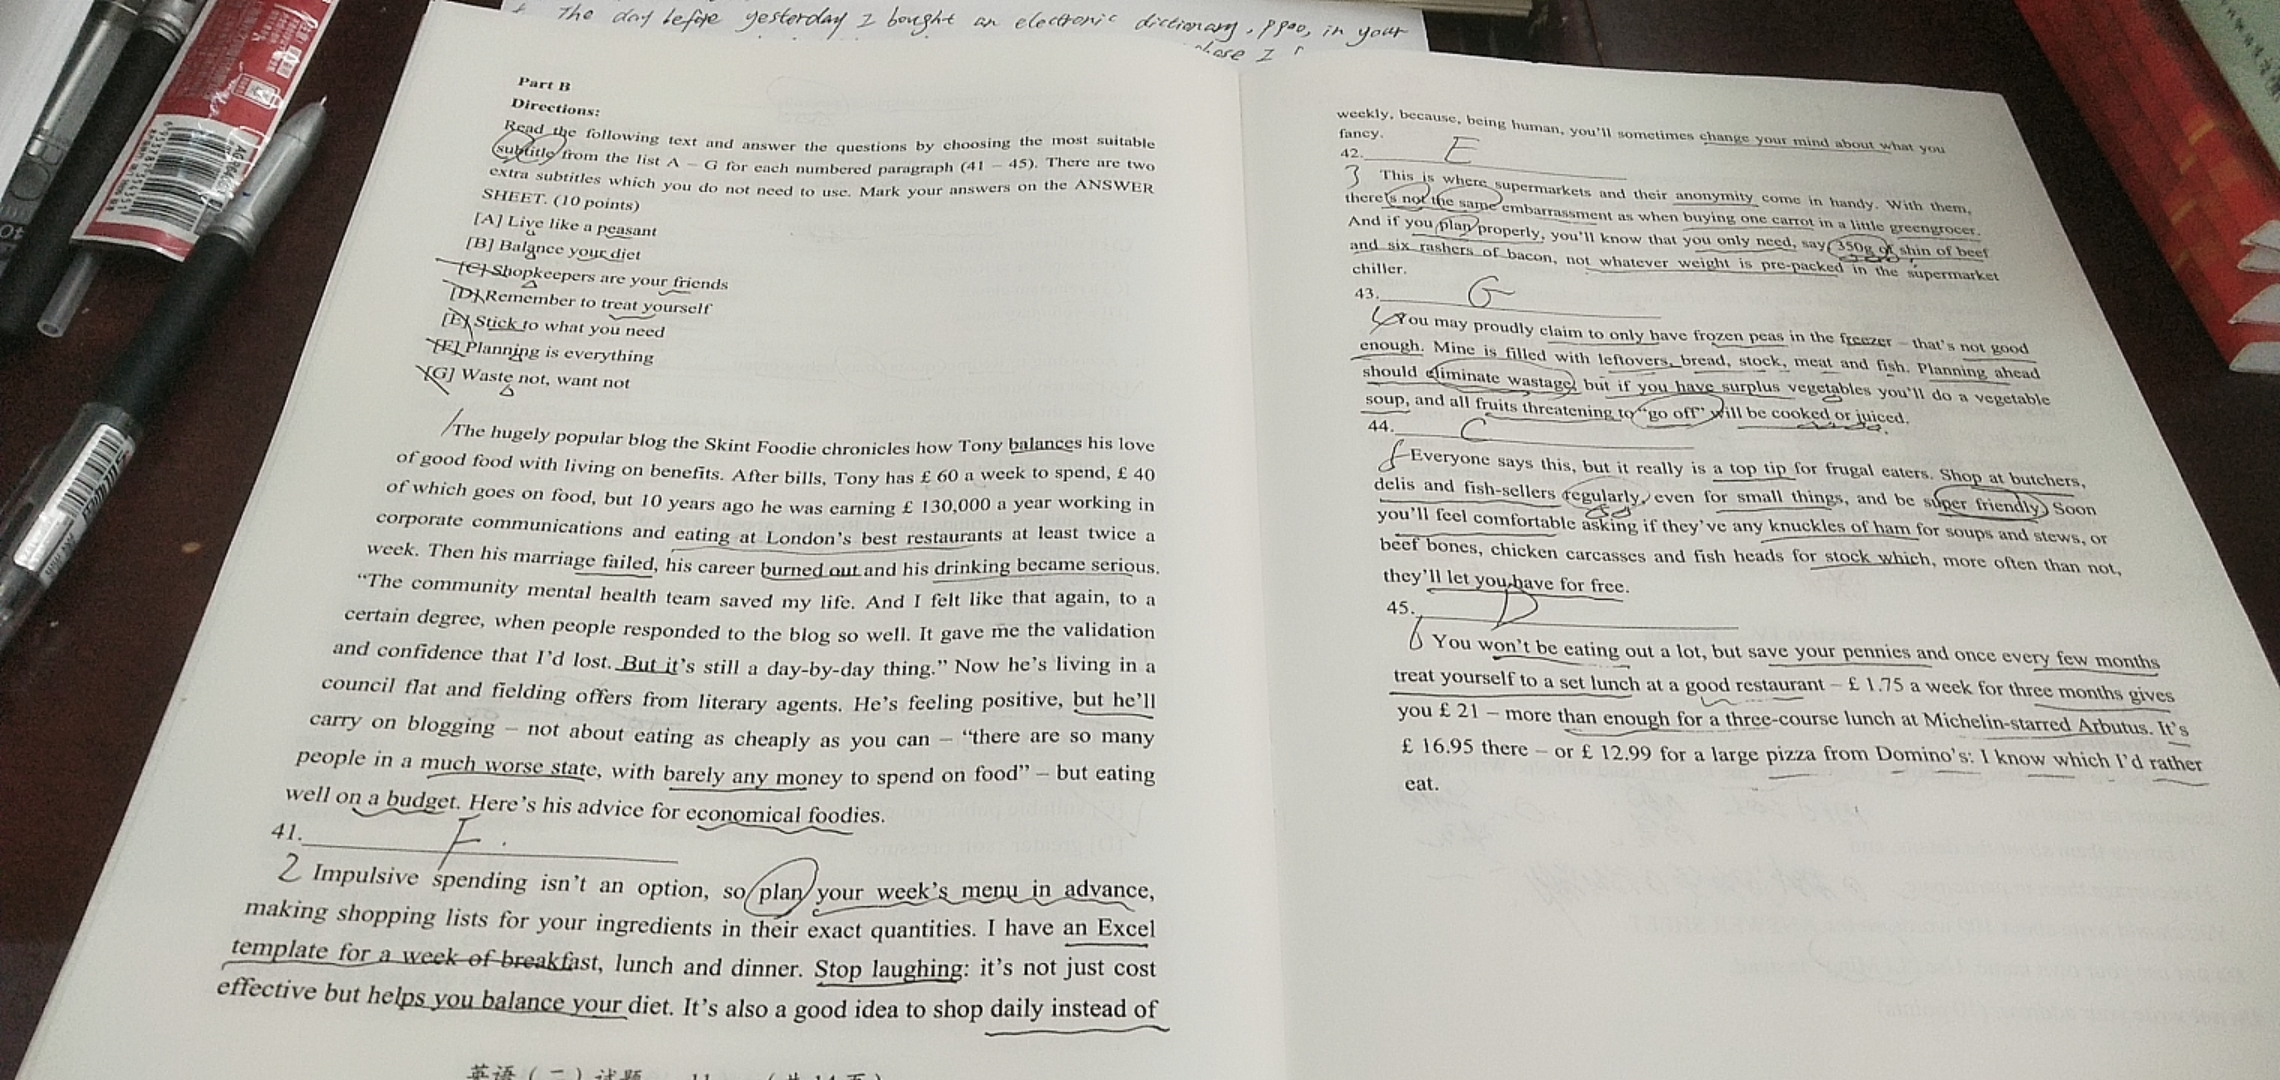 The day before yesterday I bought an electronic dictionary, in your
Part B
Directions:
Read the following text and answer the questions by choosing the most suitable
subtitle from the list A – G for each numbered paragraph (41 – 45). There are two
extra subtitles which you do not need to use. Mark your answers on the ANSWER
SHEET. (10 points)
[A] Live like a peasant
[B] Balance your diet
[C] Shopkeepers are your friends
[D] Remember to treat yourself
[E] Stick to what you need
[F] Planning is everything
[G] Waste not, want not
1 The hugely popular blog the Skint Foodie chronicles how Tony balances his love
of good food with living on benefits. After bills, Tony has £ 60 a week to spend, £ 40
of which goes on food, but 10 years ago he was earning £ 130,000 a year working in
corporate communications and eating at London's best restaurants at least twice a
week. Then his marriage failed, his career burned out and his drinking became serious.
“The community mental health team saved my life. And I felt like that again, to a
certain degree, when people responded to the blog so well. It gave me the validation
and confidence that I'd lost. But it's still a day-by-day thing.” Now he's living in a
council flat and fielding offers from literary agents. He's feeling positive, but he'll
carry on blogging – not about eating as cheaply as you can – “there are so many
people in a much worse state, with barely any money to spend on food” – but eating
well on a budget. Here's his advice for economical foodies.
41. F.
2 Impulsive spending isn't an option, so plan your week's menu in advance,
making shopping lists for your ingredients in their exact quantities. I have an Excel
template for a week of breakfast, lunch and dinner. Stop laughing: it's not just cost
effective but helps you balance your diet. It's also a good idea to shop daily instead of
weekly, because, being human, you'll sometimes change your mind about what you
fancy.
42. E
3 This is where supermarkets and their anonymity come in handy. With them,
there's not the same embarrassment as when buying one carrot in a little greengrocer.
And if you plan properly, you'll know that you only need, say, 350g of shin of beef
and six rashers of bacon, not whatever weight is pre-packed in the supermarket
chiller.
43. G
4 You may proudly claim to only have frozen peas in the freezer – that's not good
enough. Mine is filled with leftovers, bread, stock, meat and fish. Planning ahead
should eliminate wastage, but if you have surplus vegetables you'll do a vegetable
soup, and all fruits threatening to “go off” will be cooked or juiced.
44. C
5 Everyone says this, but it really is a top tip for frugal eaters. Shop at butchers,
delis and fish-sellers regularly, even for small things, and be super friendly. Soon
you'll feel comfortable asking if they've any knuckles of ham for soups and stews, or
beef bones, chicken carcasses and fish heads for stock which, more often than not,
they'll let you have for free.
45. D
6 You won't be eating out a lot, but save your pennies and once every few months
treat yourself to a set lunch at a good restaurant – £ 1.75 a week for three months gives
you £ 21 – more than enough for a three-course lunch at Michelin-starred Arbutus. It's
£ 16.95 there – or £ 12.99 for a large pizza from Domino's: I know which I'd rather
eat.
英语（二）试题